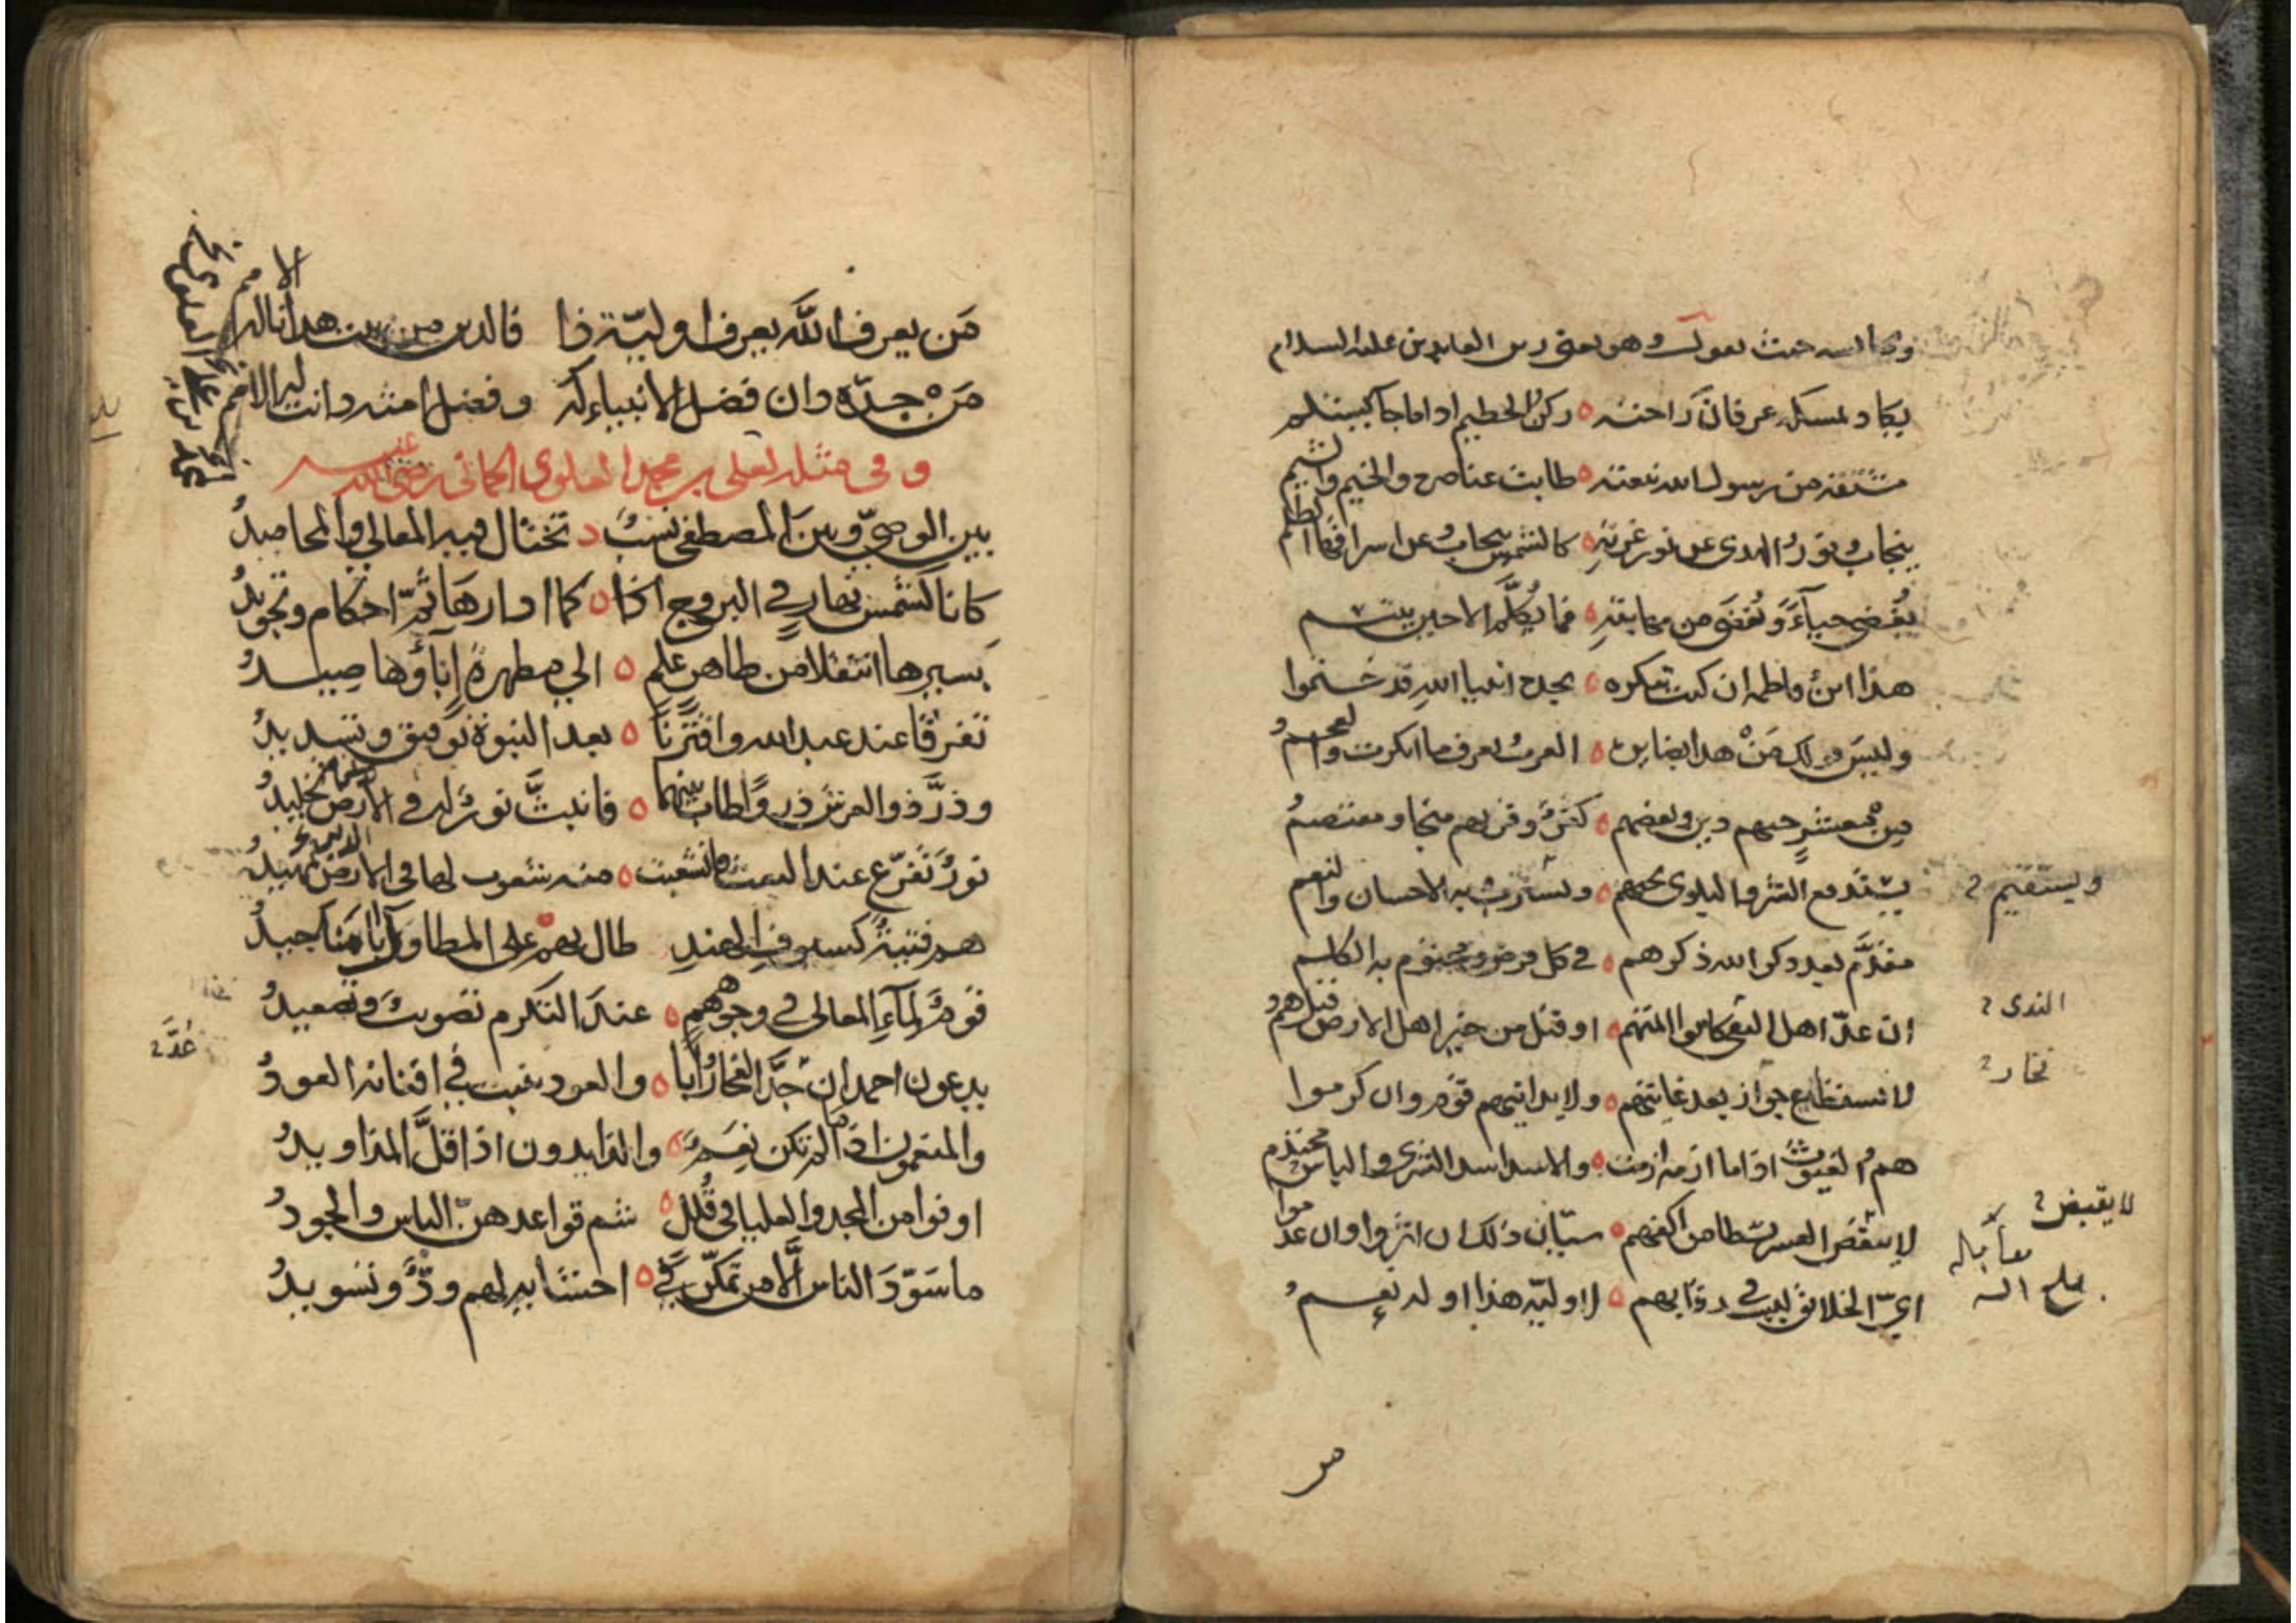 حيث يقول وهو يعني زين العابدين عليه السلام
يكاد يمسكه عرفان راحته ه ركن الحطيم اذا ما جا يستلم
مشتقة من رسول الله نبعته ه طابت عناصره والخيم والشيم
ينجاب نور الهدى عن نور غرته ه كالشمس ينجاب عن اشراقها الظلم
يُغضي حياءً وَيُغضَى من مهابته ه فما يُكلَّم الا حين يبتسم
هذا ابن فاطمه ان كنت تنكره ه بجده انبيا الله قد ختموا
وليسَ قولك مَنْ هذا بضايره ه العرب تعرف ما انكرت والعجم
مِنْ معشرٍ حبهم دين وبغضهم ه كفرٌ وقربهم منجا ومعتصمُ
يستدفع الشر والبلوى بحبهم ه ويسترب به الاحسان والنعم
ويستقيم
مقدَّم بعد ذكر الله ذكرهم ه في كل فرض ومختوم به الكلم
ان عدّ اهل التقى كانوا ائمتهم ه او قيل من خير اهل الارض قيل هم
الندى
لا يستطيع جواز بعد غايتهم ه ولا يدانيهم قوم وان كرموا
هم الغيوث اذا ما ازمة ازمت ه والاسد اسد الشرى والباس محتدم
لا ينقض العسر بسطا من اكفهم ه سيّان ذلك ان اثروا وان عدموا
لا يقبض
ايّ الخلائق ليست في رقابهم ه لاوليّة هذا او له نعمُ
مَن يعرف الله يعرف اوليّة ذا فالدين من بيت هذا ناله الامم
مَنْ جدّه دان فضل الانبياء له وفضل امته دانت لها الامم
وفي مثله لعلي بن محمد العلوي الحماني رضي الله عنه
بين الوصيّ وبين المصطفى نسبٌ ه تختال فيه المعالي والمحاميدُ
كانا كشمس نهارٍ في البروج كما ه ادارها ثمّ احكام وتجويدُ
بسيرها انتقلا من طاهر علم ه الى مطهرةٍ اباؤها صيدُ
تفرقا عند عبد الله واقترنا ه بعد النبوة توفيق وتسديدُ
وذرَّ ذو العرش ذروًا طاب بينهما ه فانبثَّ نورٌ له في الارض تخليدُ
نورٌ تفرّع عند البعث فانشعبت ه منه شعوب لها في الدين تمهيدُ
هم فتيةٌ كسيوف الهند طال بهم ه على المطاول اباءٌ مناجيدُ
قومٌ لماءِ المعالي في وجوههم ه عند التكرم تصويبٌ وتصعيدُ
يدعون احمد ان عدَّ الفخار ابا ه والعود ينبت في افنانه العودُ
عُدَّ
والمنعمون اذا ما لم تكن نعمٌ ه والذايدون اذا قلَّ المذاويدُ
اوفوا من المجد والعليا في قُلل ه شم قواعدهنّ الباس والجودُ
ما سَوّدَ الناس الّا من تمكّن في ه احشايه لهم ودٌّ وتسويدُ